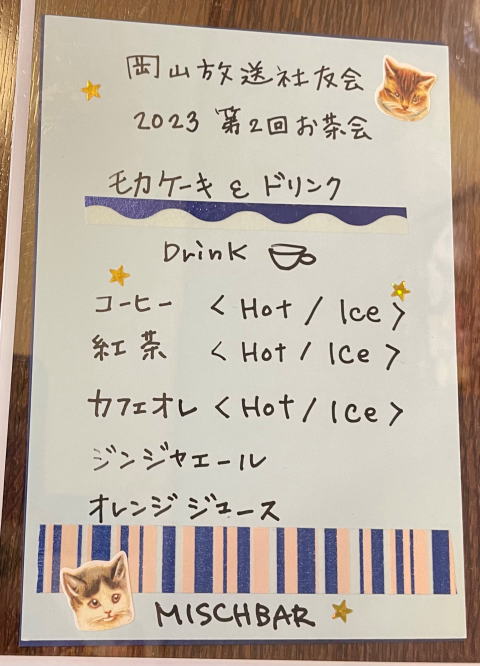 岡山放送社友会
2023 第2回お茶会
モカケーキ & ドリンク
Drink
コーヒー <Hot / Ice>
紅茶 <Hot / ICe>
カフェオレ <Hot / ICe>
ジンジャエール
オレンジジュース
MISCHBAR